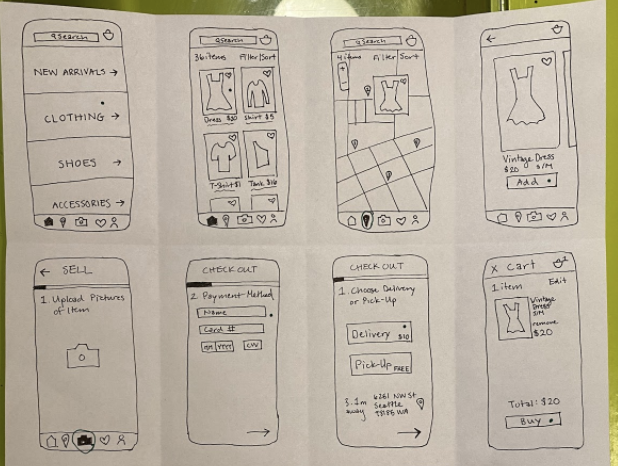 Search
NEW ARRIVALS →
CLOTHING →
SHOES →
ACCESSORIES →
Search
36 items Filter|Sort
Dress $20 Shirt $5
T-Shirt $1 Tank $16
Search
4 items Filter Sort
+
-
←
Vintage Dress
$20 S/M
Add
← SELL
1. Upload Pictures
of Item
CHECK OUT
2 Payment Method
Name
Card #
YYYY CVV
→
CHECK OUT
1. Choose Delivery
or Pick-Up
Delivery $10
Pick-Up FREE
3.1m
away
6261 NW St
Seattle
WA
→
X Cart
1 item Edit
Vintage
Dress
S/M
remove
$20
Total: $20
Buy